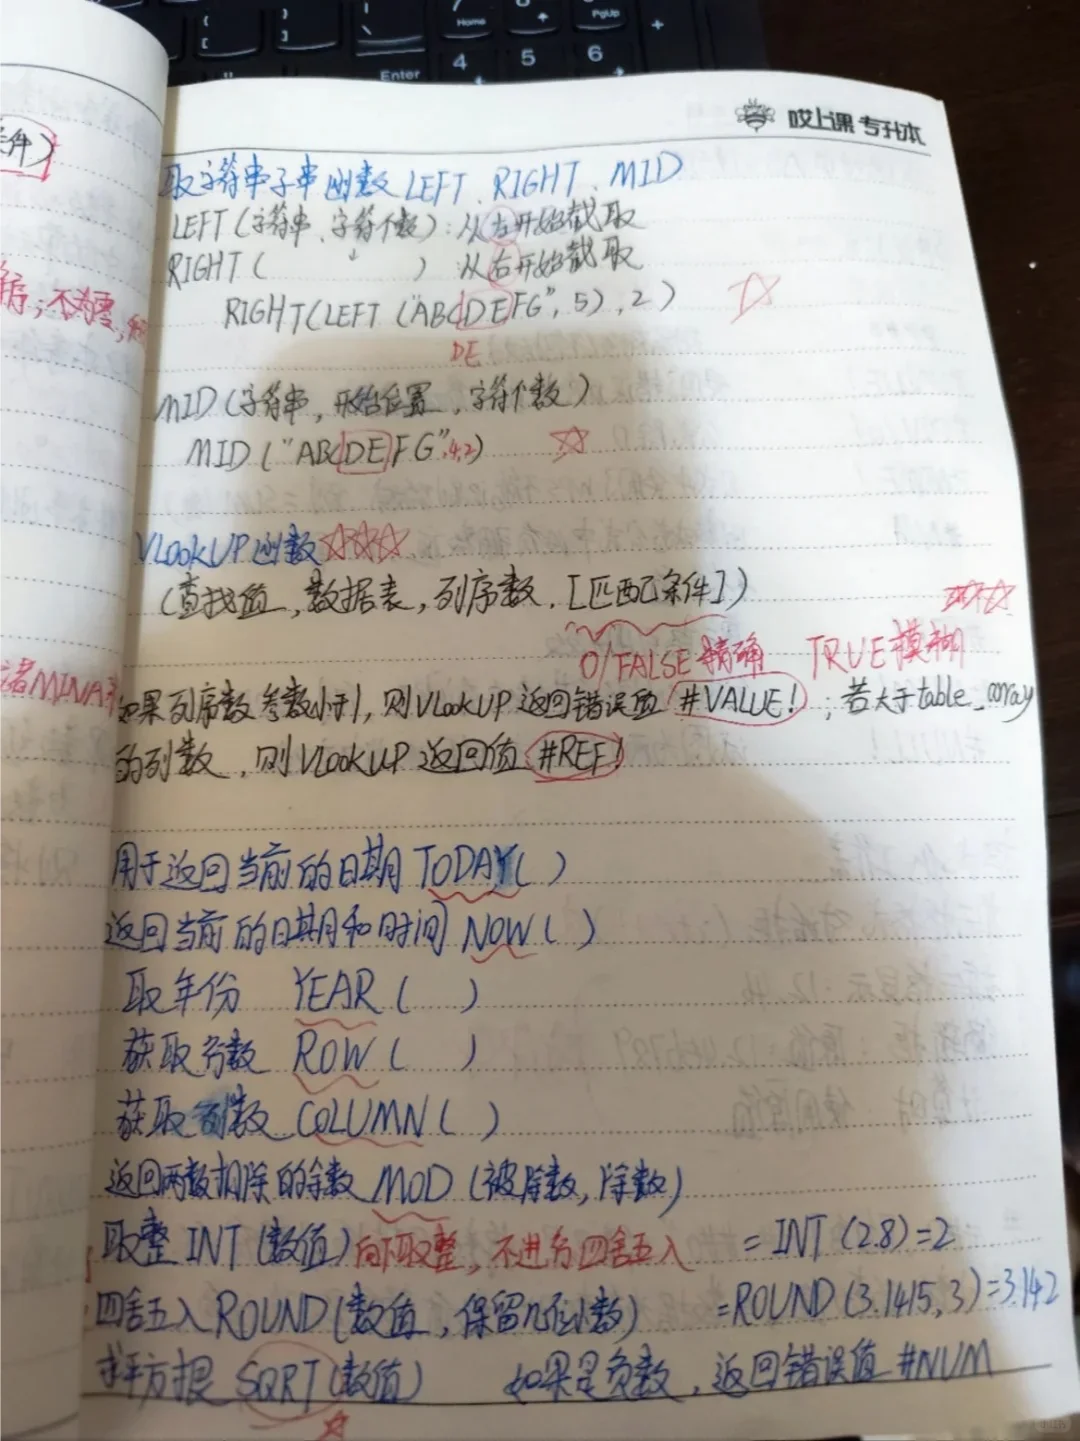 哎上课 专升本
取字符串子串函数 LEFT、RIGHT、MID
LEFT（字符串、字符个数）：从左开始截取
RIGHT（ ） 从右开始截取
RIGHT(LEFT("ABCDEFG",5),2)
DE
MID（字符串，开始位置，字符个数）
MID("ABCDEFG",4,2)
VLookUP函数
（查找值，数据表，列序数，[匹配条件]）
0/FALSE 精确 TRUE模糊
如果列序数参数小于1，则VLookUP返回错误值 #VALUE！；若大于table_array
的列数，则VLookUP返回值 #REF！
用于返回当前的日期 TODAY( )
返回当前的日期和时间 NOW( )
取年份 YEAR( )
获取行数 ROW( )
获取列数 COLUMN( )
返回两数相除的余数 MOD（被除数，除数）
取整 INT（数值）向下取整，不进行四舍五入 =INT(2.8)=2
四舍五入ROUND（数值，保留几位小数） =ROUND(3.1415,3)=3.142
求平方根 SQRT（数值） 如果是负数，返回错误值 #NUM
件）
不为零，
者MINA
Enter
Home
PgUp
4
5
6
+